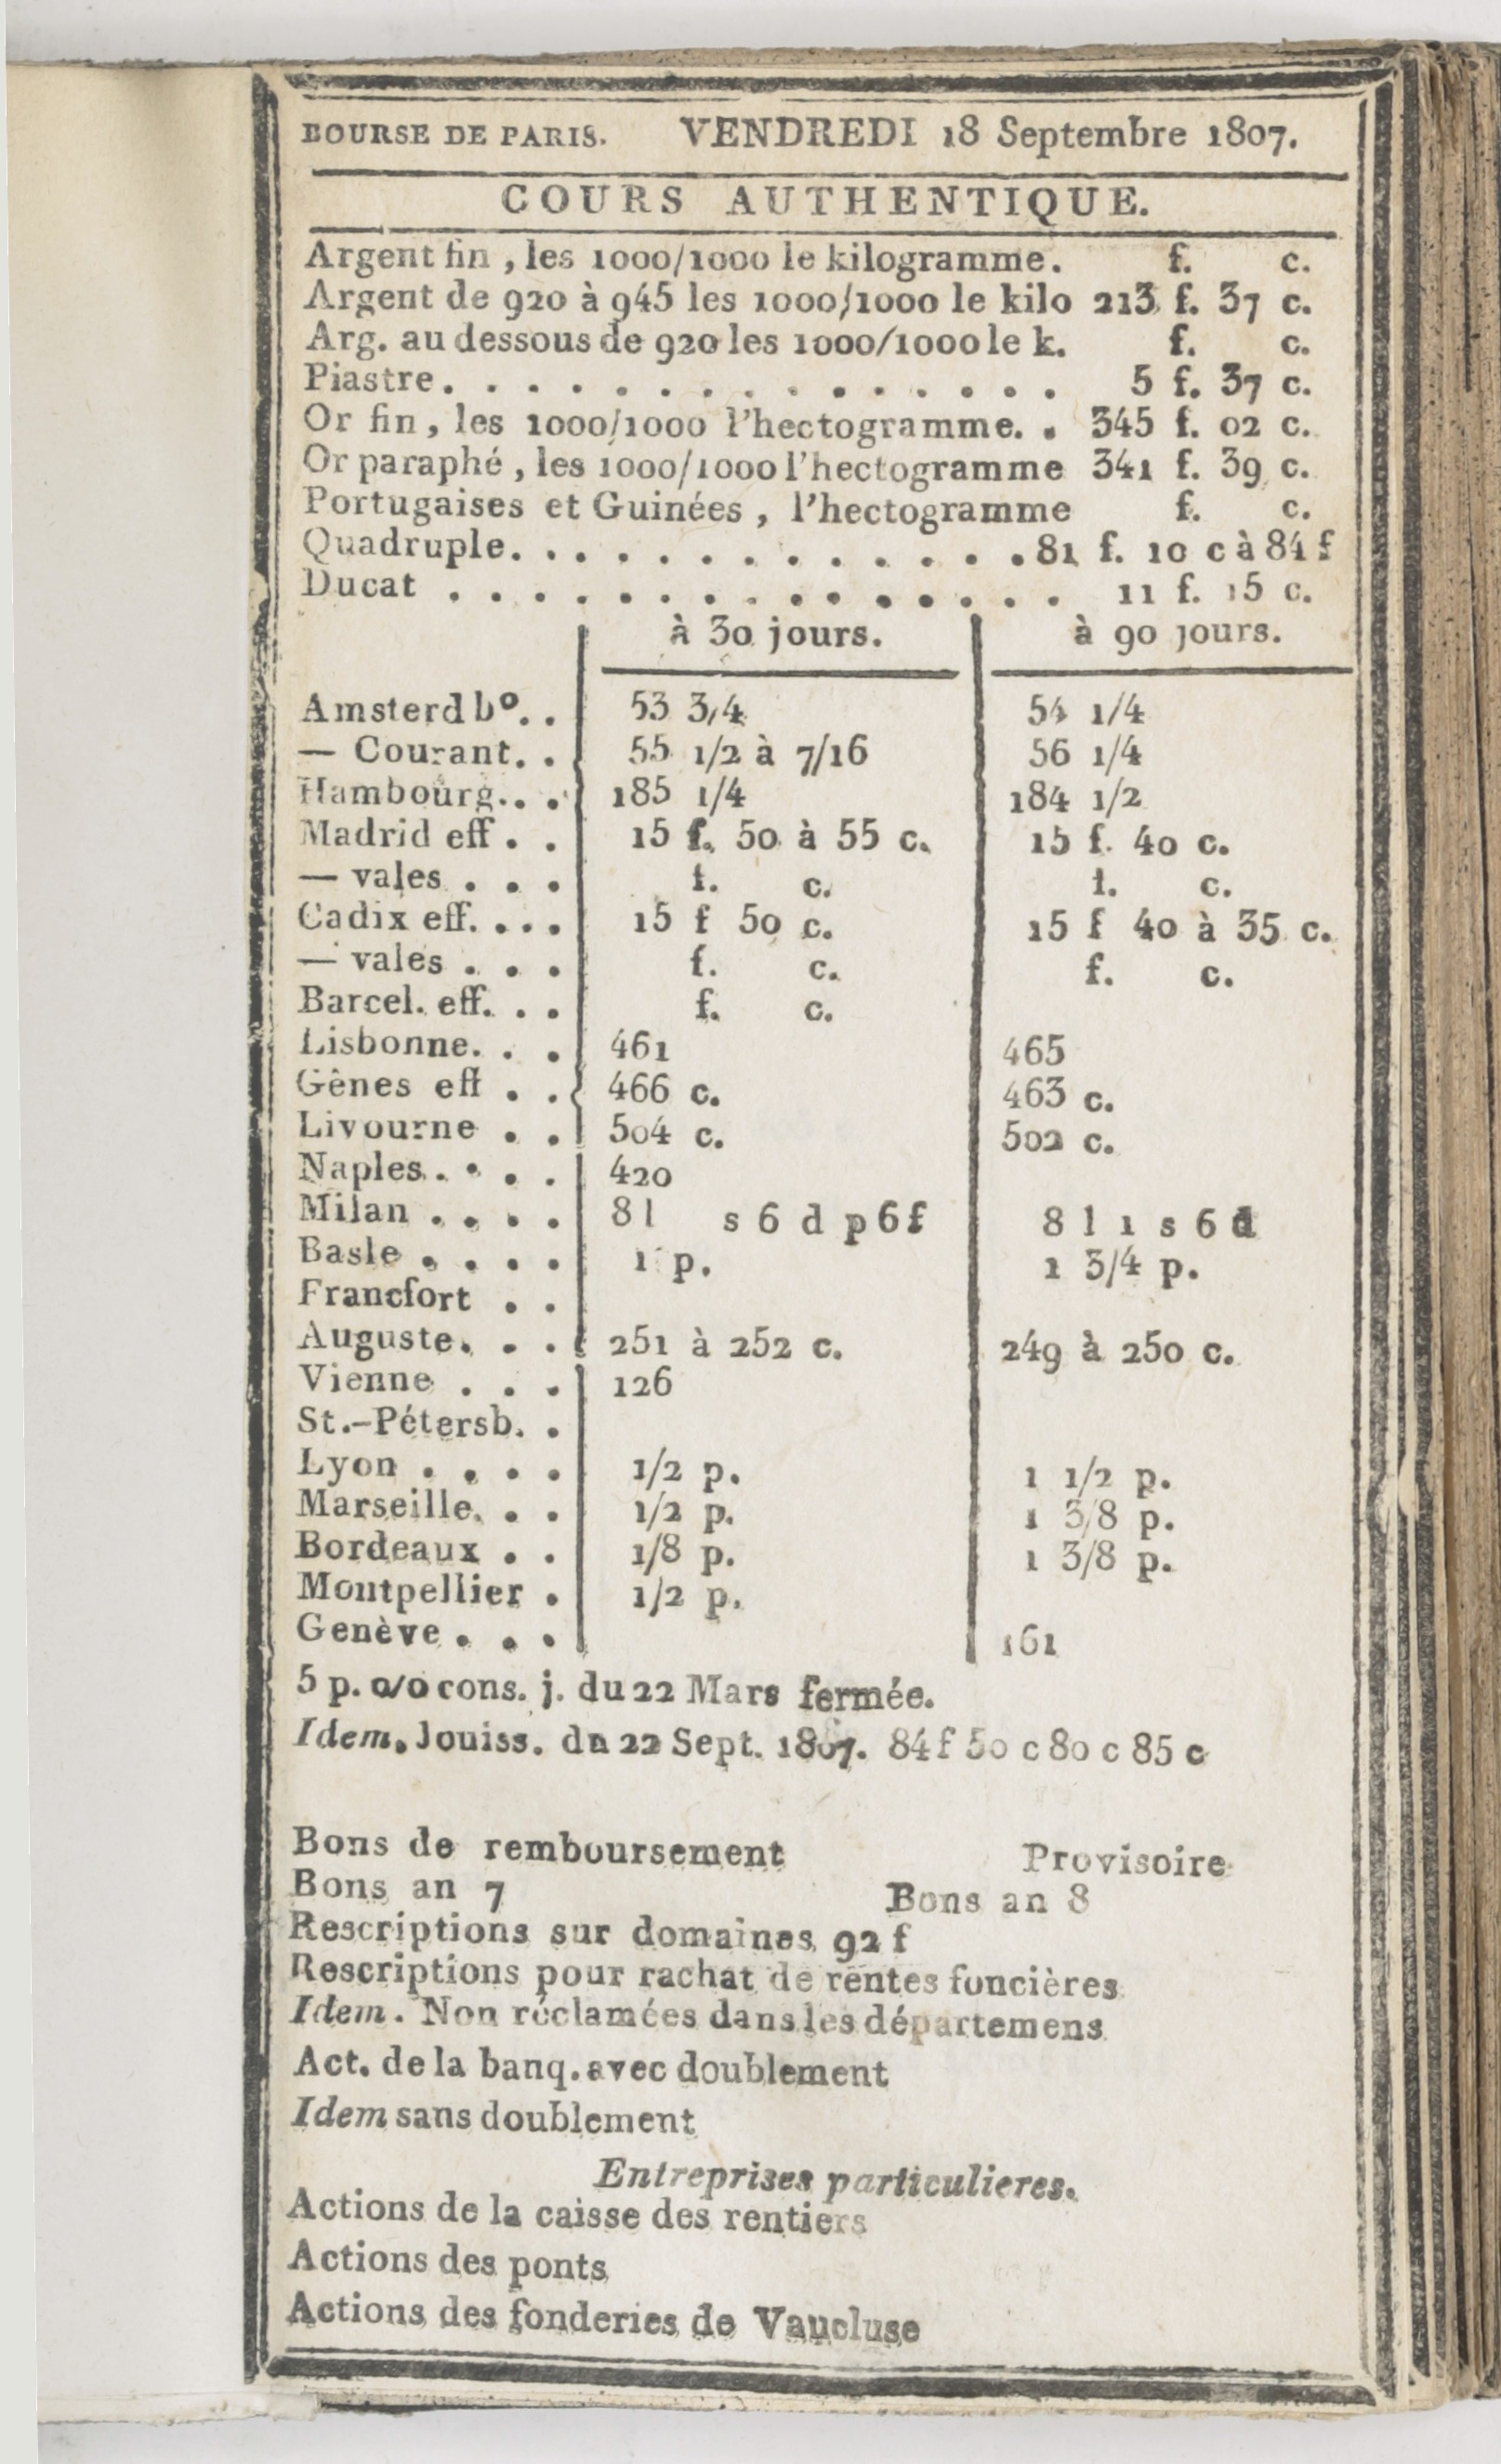 BOURSE DE PARIS. VENDREDI 18 Septembre 1807.
COURS AUTHENTIQUE.
Argent fin , les 1000/1000 le kilogramme. f. c.
Argent de 920 à 945 les 1000/1000 le kilo 213 f. 37 c.
Arg. au dessous de 920 les 1000/1000 le k. f. c.
Piastre. . . . . . . . . . . . . . . 5 f. 37 c.
Or fin , les 1000/1000 l'hectogramme. . 345 f. 02 c.
Or paraphé , les 1000/1000 l'hectogramme 341 f. 39 c.
Portugaises et Guinées , l'hectogramme f. c.
Quadruple. . . . . . . . . . . . . 81 f. 10 c à 84 f
Ducat . . . . . . . . . . . . . . . 11 f. 15 c.
à 30 jours. à 90 jours.
Amsterd bº. . 53 3/4 54 1/4
— Courant. . 55 1/2 à 7/16 56 1/4
Hambourg. . . 185 1/4 184 1/2
Madrid eff . . 15 f. 50 à 55 c. 15 f. 40 c.
— vales . . . f. c. f. c.
Cadix eff. . . . 15 f 50 c. 15 f 40 à 35 c.
— vales . . . f. c. f. c.
Barcel. eff. . . f. c.
Lisbonne. . . 461 465
Gênes eff . . 466 c. 463 c.
Livourne . . 504 c. 502 c.
Naples. . . . 420
Milan . . . . 8 l s 6 d p 6 f 8 l 1 s 6 d
Basle . . . . 1 p. 1 3/4 p.
Francfort . .
Auguste. . . 251 à 252 c. 249 à 250 c.
Vienne . . . 126
St.-Pétersb. .
Lyon . . . . 1/2 p. 1 1/2 p.
Marseille. . . 1/2 p. 1 3/8 p.
Bordeaux . . 1/8 p. 1 3/8 p.
Montpellier . 1/2 p.
Genève . . . 161
5 p. o/o cons. j. du 22 Mars fermée.
Idem. Jouiss. du 22 Sept. 1807. 84 f 50 c 80 c 85 c
Bons de remboursement Provisoire
Bons an 7 Bons an 8
Rescriptions sur domaines 92 f
Rescriptions pour rachat de rentes foncières
Idem. Non réclamées dans les départemens
Act. de la banq. avec doublement
Idem sans doublement
Entreprises particulieres.
Actions de la caisse des rentiers
Actions des ponts
Actions des fonderies de Vaucluse